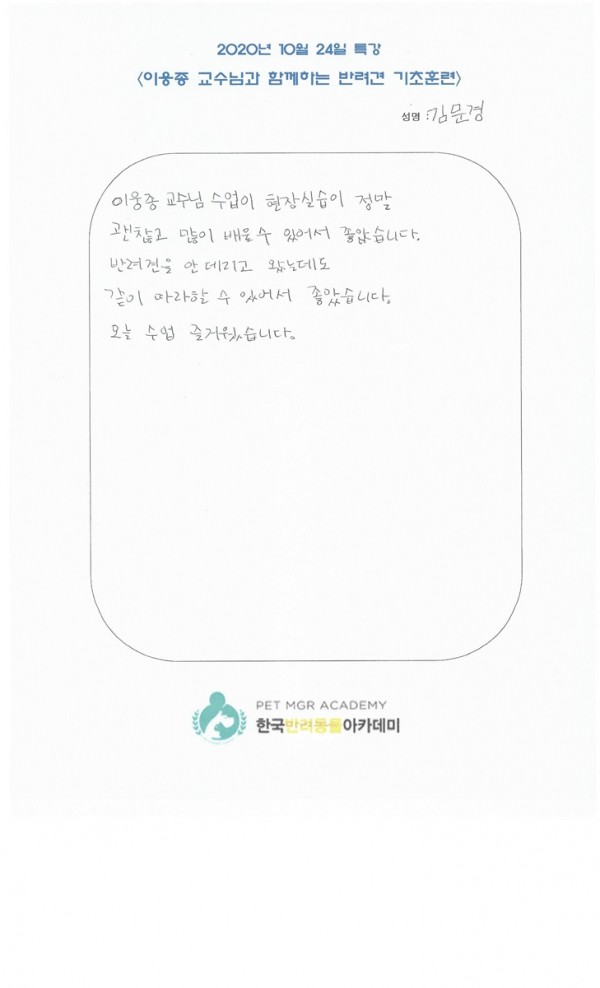 2020년 10월 24일 특강
<이웅종 교수님과 함께하는 반려견 기초훈련>
성명 : 김문경
이웅종 교수님 수업이 현장실습이 정말
괜찮고 많이 배울수 있어서 좋았습니다.
반려견을 안 데리고 왔는데도
같이 따라할 수 있어서 좋았습니다.
오늘 수업 즐거웠습니다.
PET MGR ACADEMY
한국반려동물아카데미